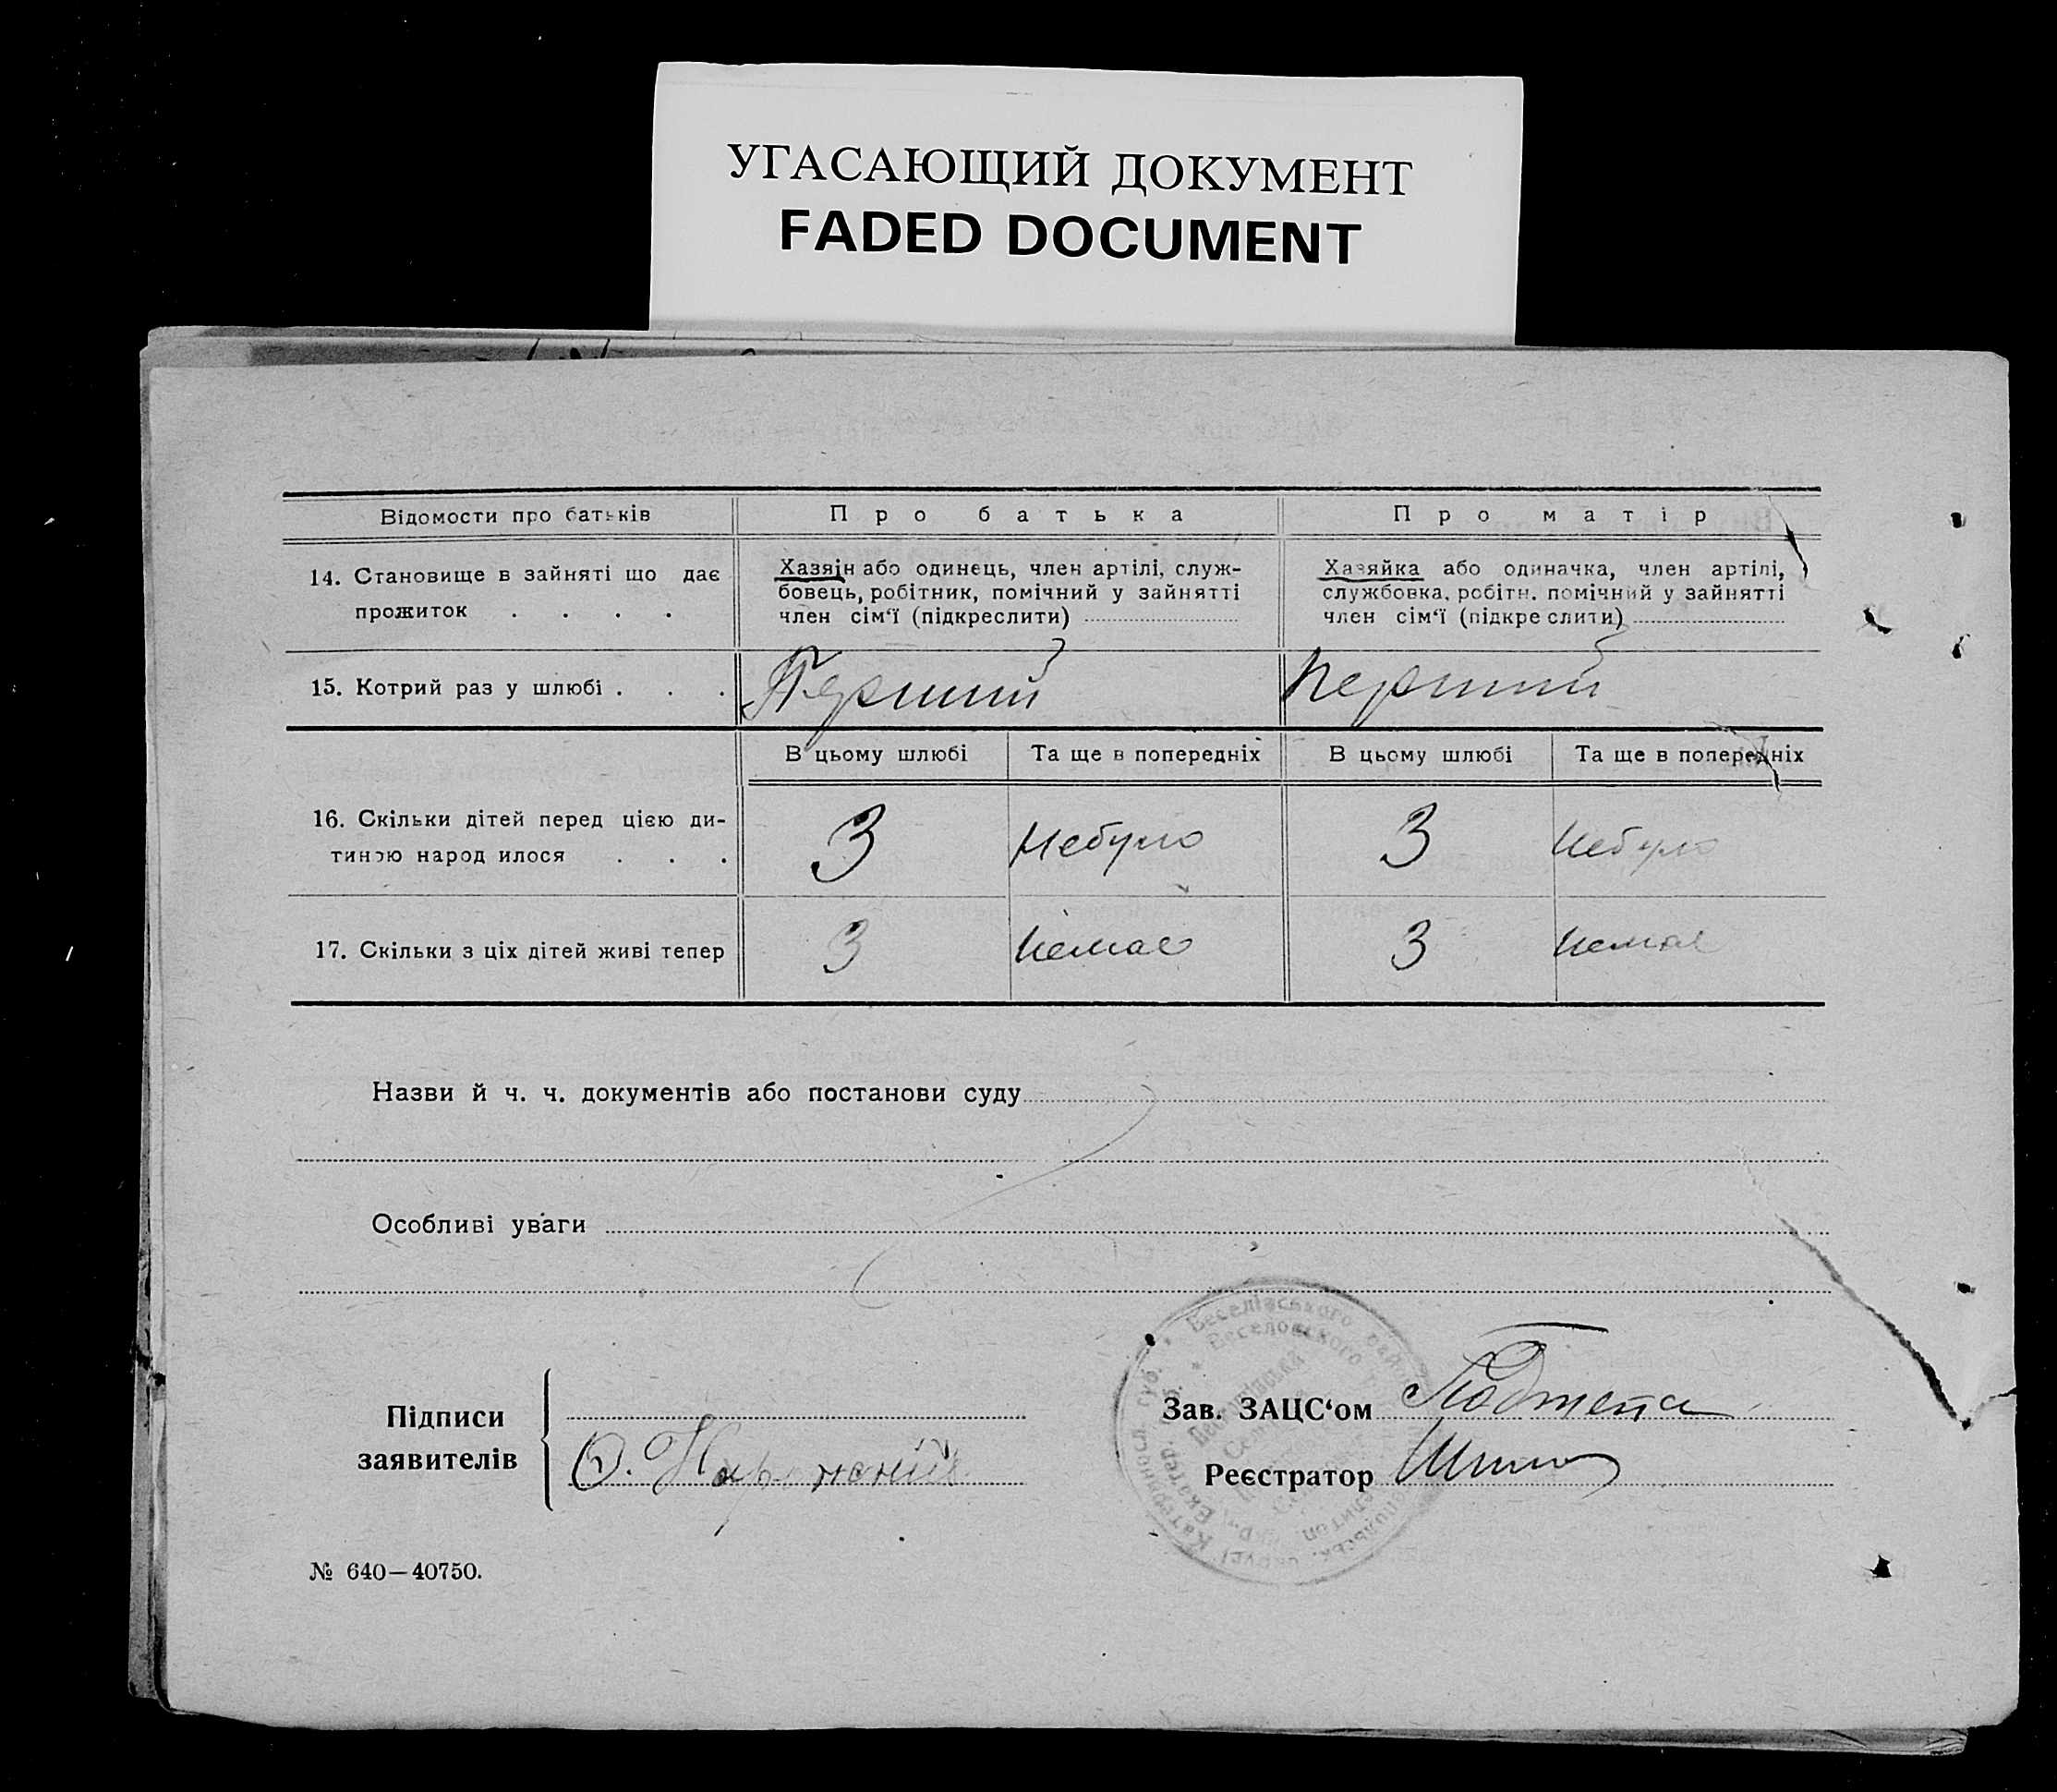 УГАСАЮЩИЙ ДОКУМЕНТ
FADED DOCUMENT
Відомости про батьків
Про батька
Про матір
14. Становище в зайняті що дає
прожиток . . . .
Хазяїн або одинець, член артілі, служ-
бовець, робітник, помічний у зайнятті
член сім‘ї (підкреслити)
Хазяйка або одиначка, член артілі,
службовка, робітн. помічний у зайнятті
член сім‘ї (підкреслити)
15. Котрий раз у шлюбі . . .
Перший
перший
В цьому шлюбі
Та ще в попередніх
В цьому шлюбі
Та ще в попередніх
16. Скільки дітей перед цією ди-
тиною народилося . . .
3
небуло
3
небуло
17. Скільки з ціх дітей живі тепер
3
немає
3
немає
Назви й ч. ч. документів або постанови суду
Особливі уваги
Веселівського
Веселовского
Підписи
заявителів
Зав. ЗАЦС‘ом
Реєстратор
№ 640—40750.